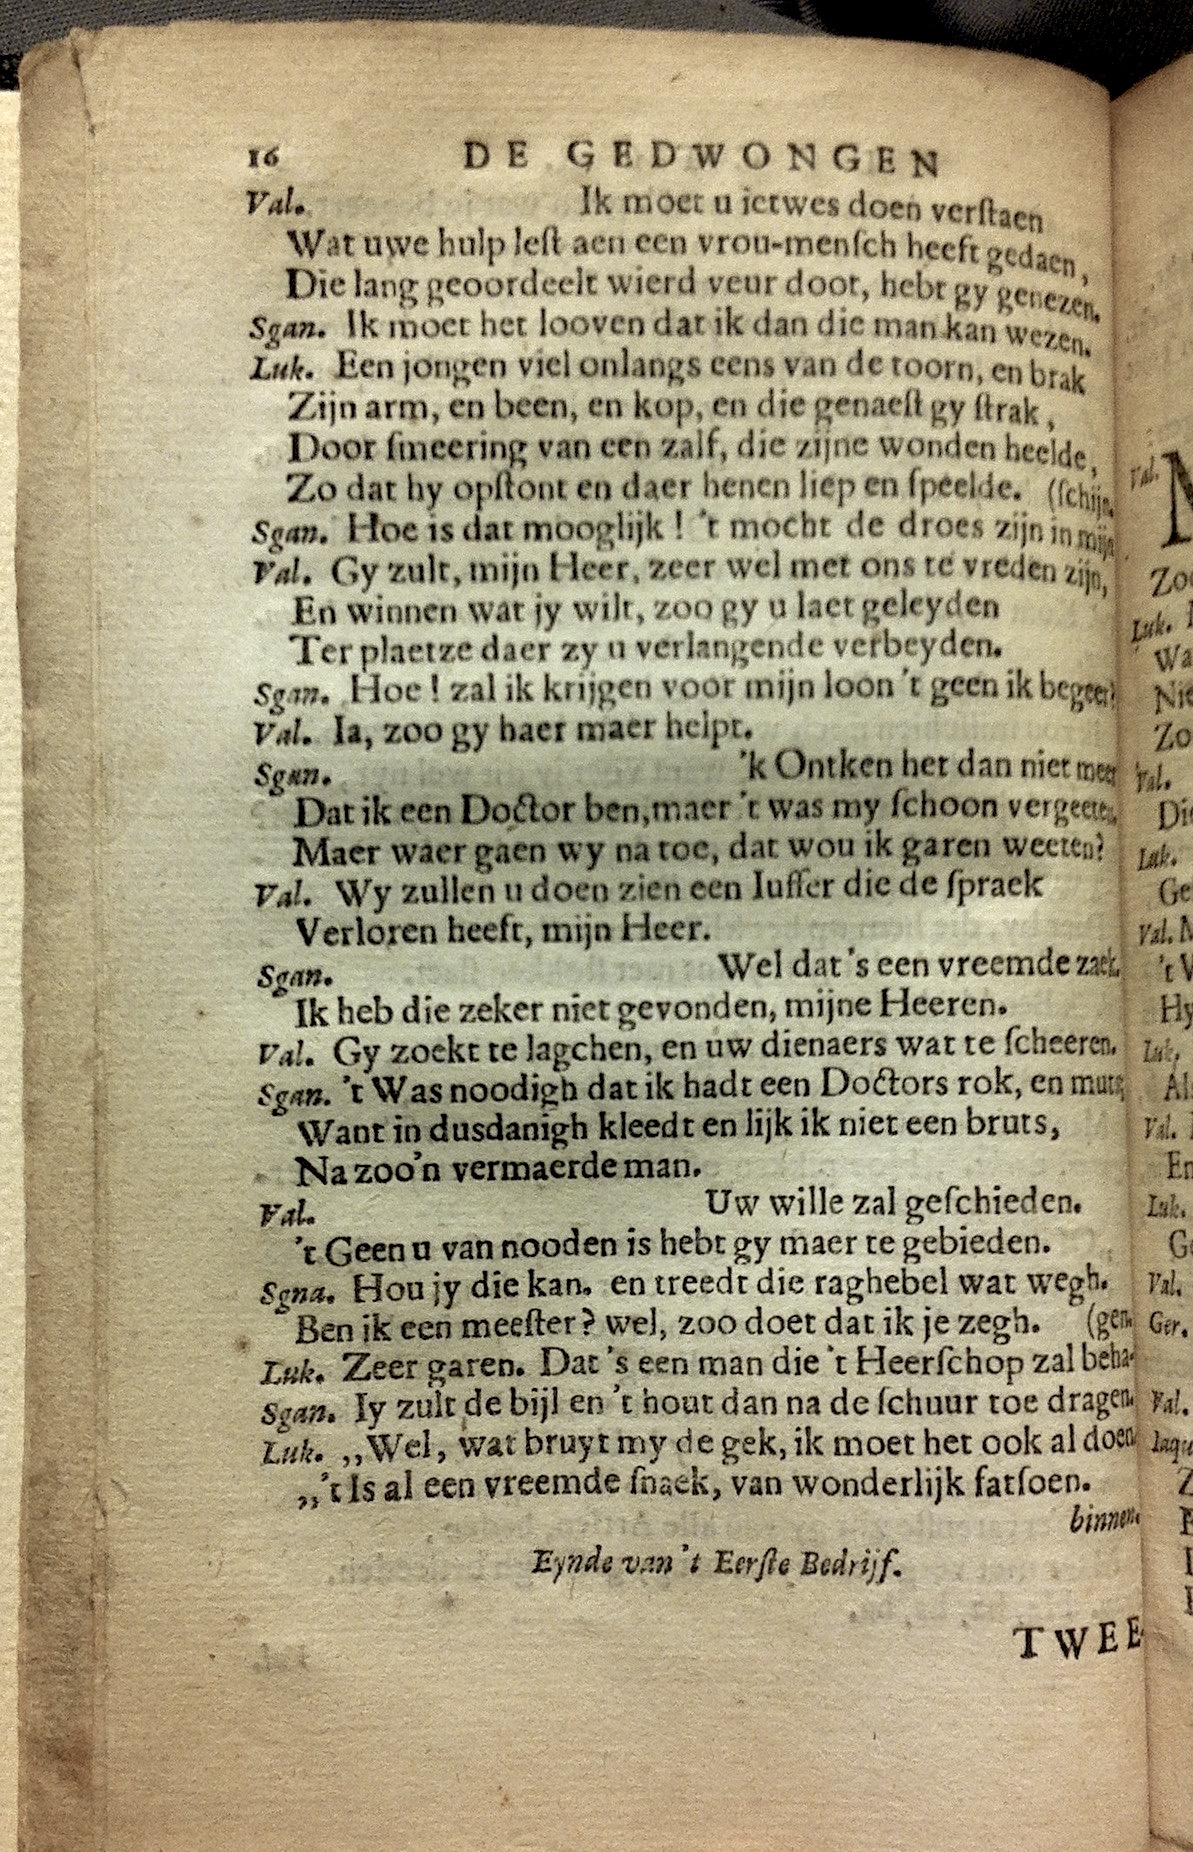 16 DE GEDWONGEN
Val. Ik moet u ietwes doen verſtaen
Wat uwe hulp leſt aen een vrou-menſch heeft gedaen,
Die lang geoordeelt wierd veur doot, hebt gy genezen.
Sgan. Ik moet het looven dat ik dan die man kan wezen.
Luk. Een jongen viel onlangs eens van de toorn, en brak
Zijn arm, en been, en kop, en die genaeſt gy ſtrak,
Door ſmeering van een zalf, die zijne wonden heelde,
Zo dat hy opſtont en daer henen liep en ſpeelde. (ſchijn.
Sgan. Hoe is dat mooglijk! 't mocht de droes zijn in mijn
Val. Gy zult, mijn Heer, zeer wel met ons te vreden zijn,
En winnen wat jy wilt, zoo gy u laet geleyden
Ter plaetze daer zy u verlangende verbeyden.
Sgan. Hoe! zal ik krijgen voor mijn loon 't geen ik begeer?
Val. Ia, zoo gy haer maer helpt.
Sgan. 'k Ontken het dan niet meer
Dat ik een Doctor ben, maer 't was my ſchoon vergeeten.
Maer waer gaen wy na toe, dat wou ik garen weeten?
Val. Wy zullen u doen zien een Iuffer die de ſpraek
Verloren heeft, mijn Heer.
Sgan. Wel dat 's een vreemde zaek.
Ik heb die zeker niet gevonden, mijne Heeren.
Val. Gy zoekt te lagchen, en uw dienaers wat te ſcheeren.
Sgan. 't Was noodigh dat ik hadt een Doctors rok, en muts
Want in dusdanigh kleedt en lijk ik niet een bruts,
Na zoo'n vermaerde man.
Val. Uw wille zal geſchieden.
't Geen u van nooden is hebt gy maer te gebieden.
Sgna. Hou jy die kan. en treedt die raghebel wat wegh.
Ben ik een meeſter? wel, zoo doet dat ik je zegh. (gen.
Luk. Zeer garen. Dat 's een man die 't Heerſchop zal beha-
Sgan. Iy zult de bijl en 't hout dan na de ſchuur toe dragen.
Luk. ,,Wel, wat bruyt my de gek, ik moet het ook al doen.
,,'t Is al een vreemde ſnaek, van wonderlijk fatſoen.
binnen.
Eynde van 't Eerſte Bedrijf.
TWEE-
Val.
Zo
Luk.
Wa
Nie
Zo
Val.
Die
Luk.
Ge
Val.
't V
Hy
Luk.
Al
Val.
En
Luk.
G
Val.
Ger.
Val.
Iaqu